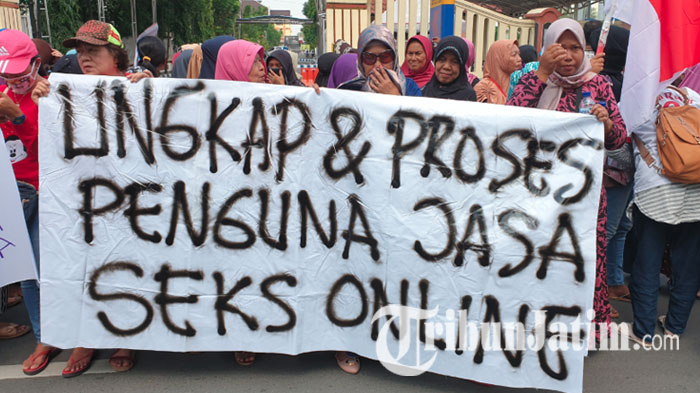 UNGKAP & PROSES
PENGUNA JASA
SEKS ONLINE
TribunJatim.com